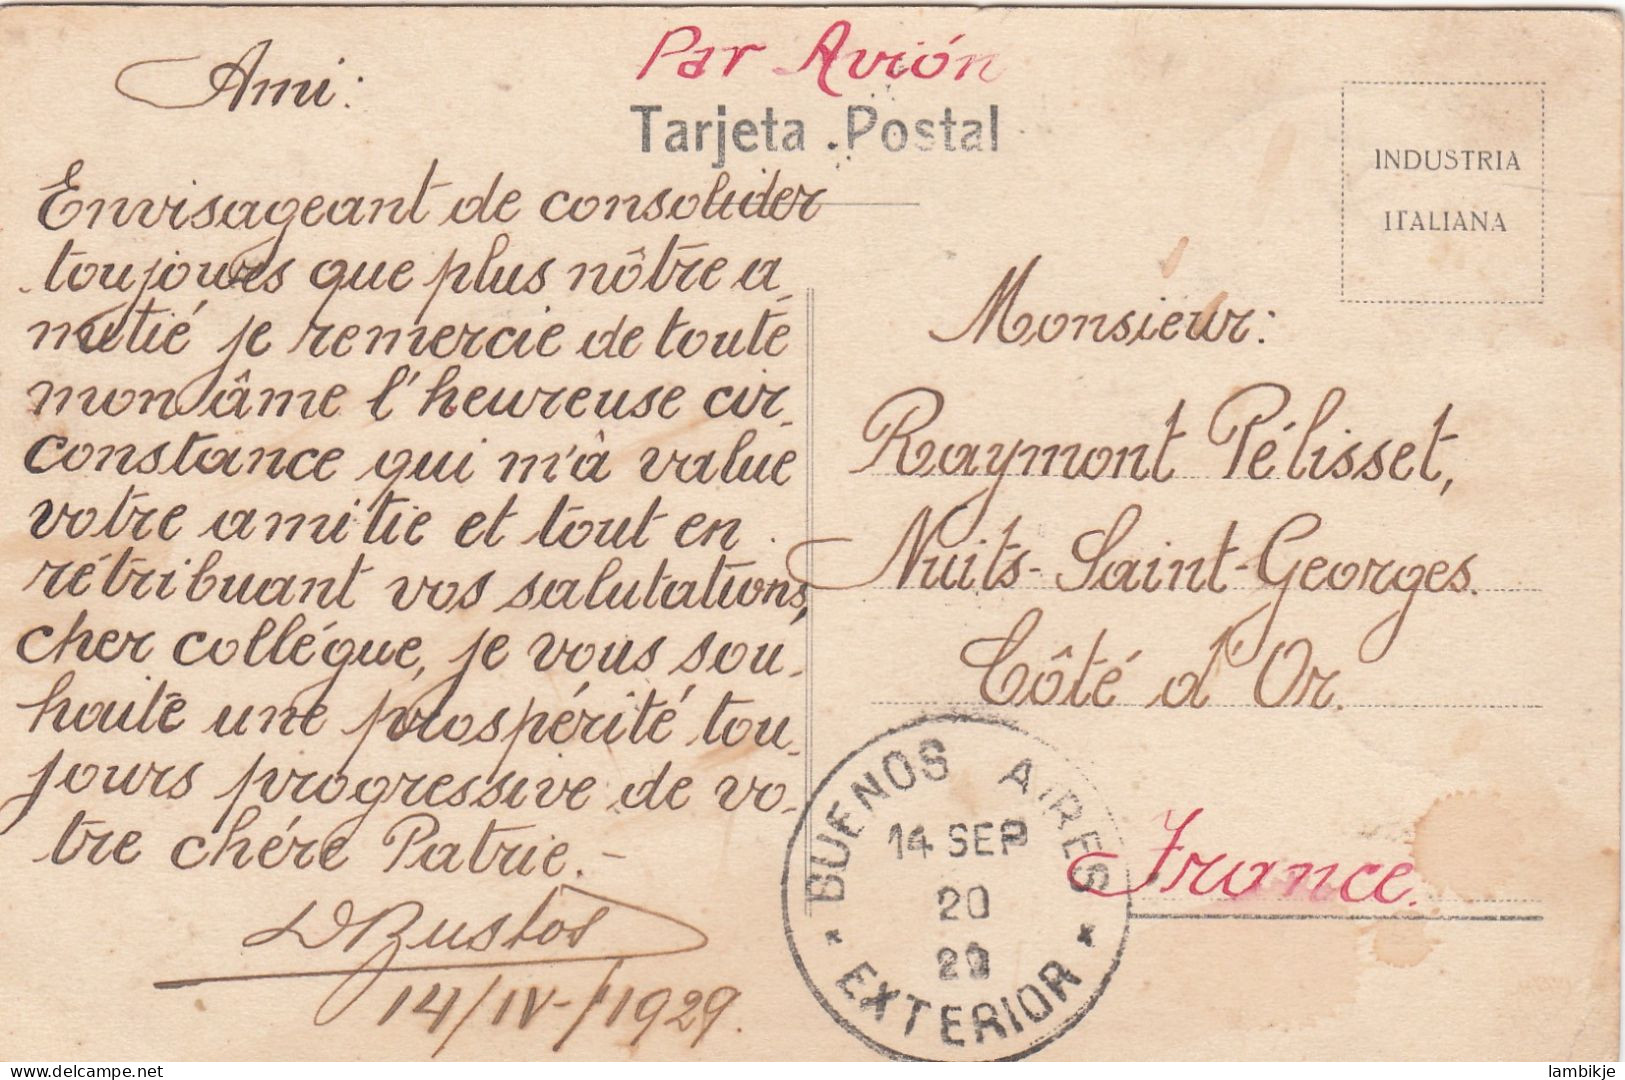 Par Avión
Tarjeta Postal
INDUSTRIA
ITALIANA
Ami:
Envisageant de consolider
toujours que plus nôtre a-
mitié je remercie de toute
mon âme l'heureuse cir-
constance qui m'à value
votre amitie et tout en
rétribuant vos salutations,
cher collégue, je vous sou-
haite une prospérité tou-
jours progressive de vo-
tre chére Patrie.-
DBustos
14/IV-/1929.
Monsieur:
Raymont Pélisset,
Nuits-Saint-Georges.
Côté d'Or.
France.
BUENOS AIRES
14 SEP
20
29
* EXTERIOR *
delcampe.net
lambikje